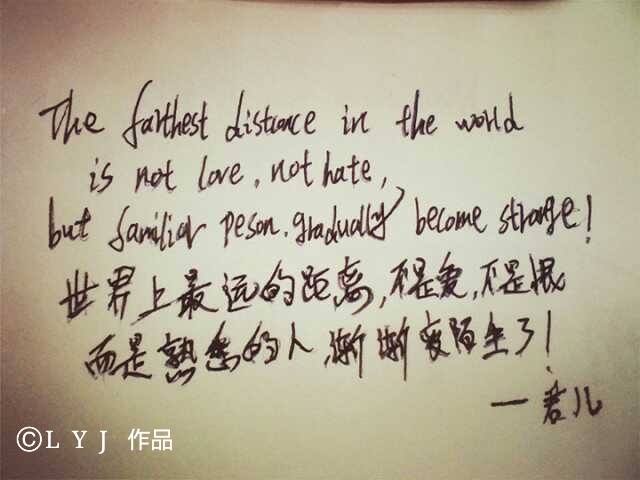 The farthest distance in the world
is not love, not hate,
but familiar peson. gradually become strange!
世界上最远的距离,不是爱,不是恨
而是熟悉的人,渐渐变陌生了!
一君儿
©LYJ 作品